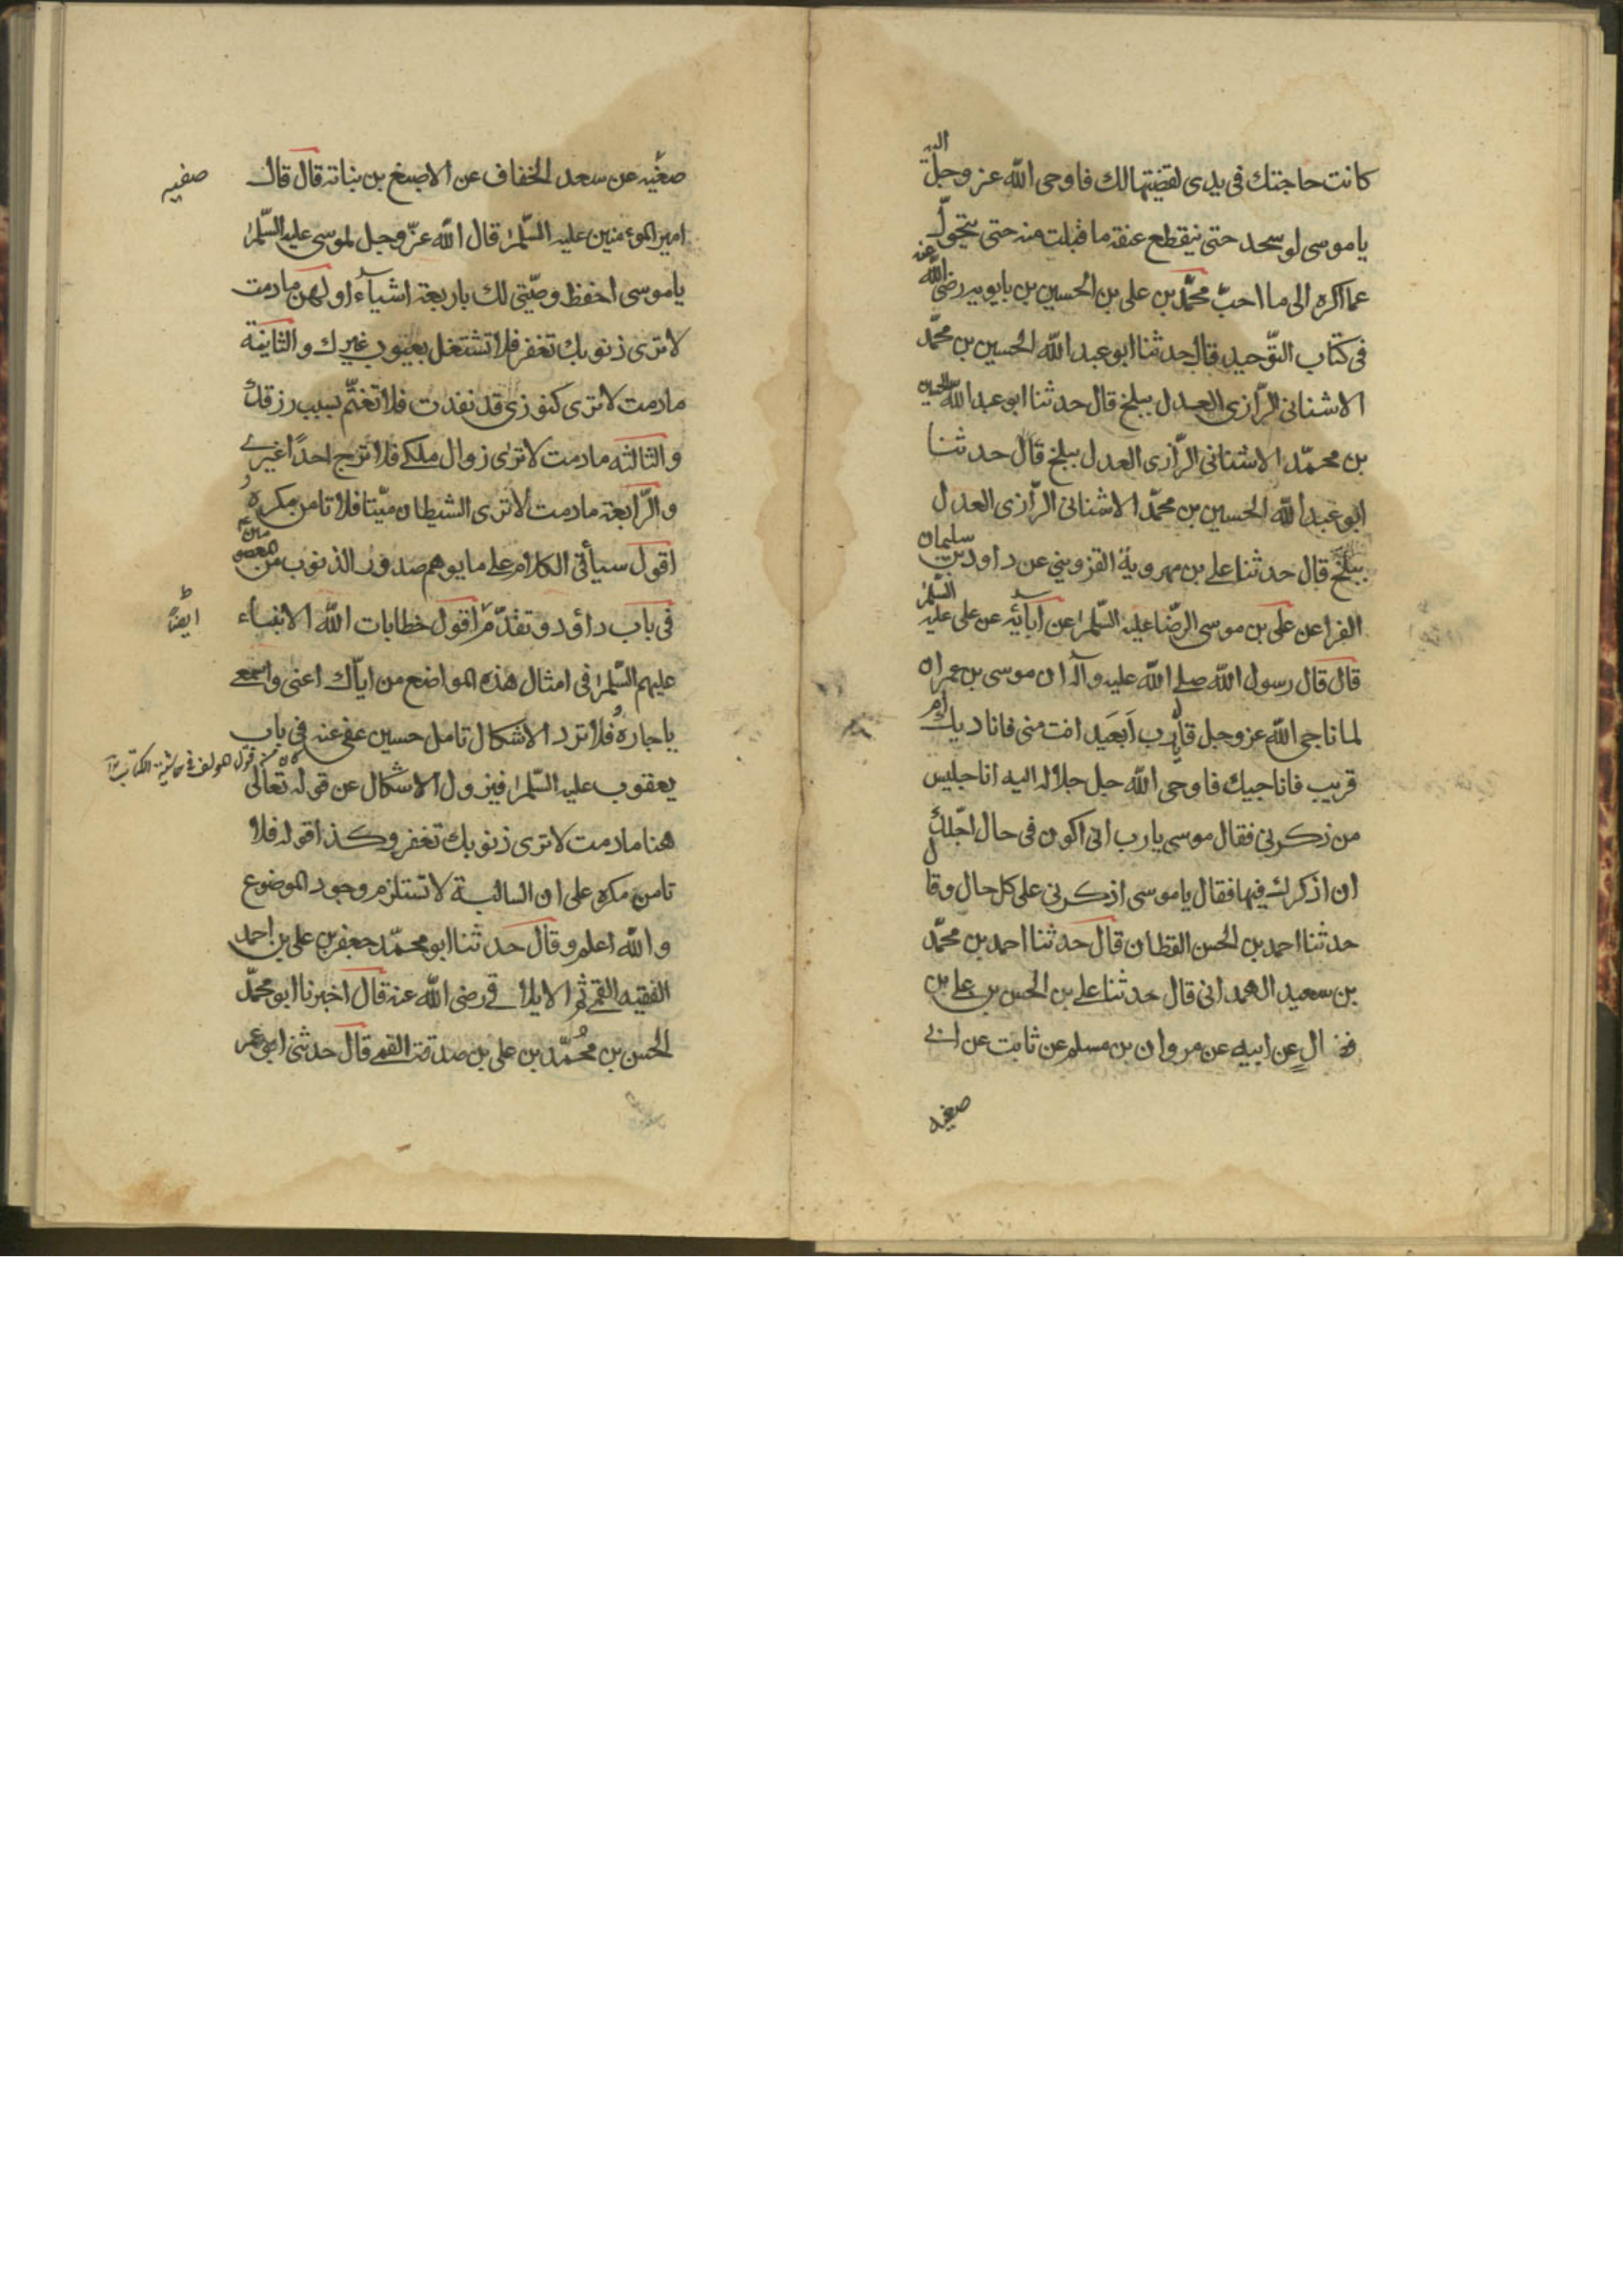 كانت حاجتك فى يدى لقضيتها لك فاوحى الله عز وجل اليه
يا موسى لو سجد حتى ينقطع عنقه ما قبلت منه حتى يتحول
عما اكره الى ما احب محمّد بن على بن الحسين بن بابويه رضى الله عنه
فى كتاب التوّحيد قال حدثنا ابو عبد الله الحسين بن محمّد
الاشنانى الرّازى العدل ببلخ قال حدثنا ابو عبد الله الحسين
بن محمّد الاشنانى الرّازى العدل ببلخ قال حدثنا
ابو عبد الله الحسين بن محمّد الاشنانى الرّازى العدل
ببلخ قال حدثنا على بن مهرويه القزوينى عن داود بن سليمان
الفرا عن على بن موسى الرّضا عليه السّلم عن آبائه عن على عليه السّلم
قال قال رسول الله صلى الله عليه وآله ان موسى بن عمران
لما ناجى الله عز وجل قال يا رب اَبَعَيد انت منى فاناديك ام
قريب فاناجيك فاوحى الله جل جلاله اليه انا جليس
من ذكرنى فقال موسى يا رب انى اكون فى حال اجّلك
ان اذكرك فيها فقال يا موسى اذكرنى على كل حال وقال
حدثنا احمد بن الحسن القطان قال حدثنا احمد بن محمّد
بن سعيد الهمدانى قال حدثنا على بن الحسن بن على بن
فضال عن ابيه عن مروان بن مسلم عن ثابت عن ابى
صفيه
صفيه عن سعد الخفاف عن الاصبغ بن نباته قال قال
صفيه
امير المؤمنين عليه السّلم قال الله عزّ وجل لموسى عليه السّلم
يا موسى احفظ وصيّتى لك باربعة اشيآء اولهن ما دمت
لا ترى ذنوبك تغفر فلا تشتغل بعيوب غيرك والثانية
ما دمت لا ترى كنوزى قد نفدت فلا تغتّم بسبب رزقك
والثالثه ما دمت لا ترى زوال ملكى فلا ترج احدًا غيرى
والرّابعة ما دمت لا ترى الشيطان ميّتا فلا تامن مكره
اقول سيأتى الكلام على ما يوهم صدور الذنوب من المعصومين
فى باب داؤد وتقدّم اقول خطابات الله الانبياء
ايضًا
عليهم السّلم فى امثال هذه المواضع من اياّك اعنى واسمعى
يا جاره فلا ترد الاشكال تامل حسين عفى عنه فى باب
يعقوب عليه السّلم فيزول الاشكال عن قوله تعالى
هنا ما دمت لا ترى ذنوبك تغفر وكذا قوله فلا
تامن مكره على ان السالبة لا تستلزم وجود الموضوع
والله اعلم وقال حدثنا ابو محمّد جعفر بن على بن احمد
الفقيه القمى ثم الايلاقى رضى الله عنه قال اخبرنا ابو محمّد
الحسن بن محمّد بن على بن صدقة القمى قال حدثنى ابو عمر